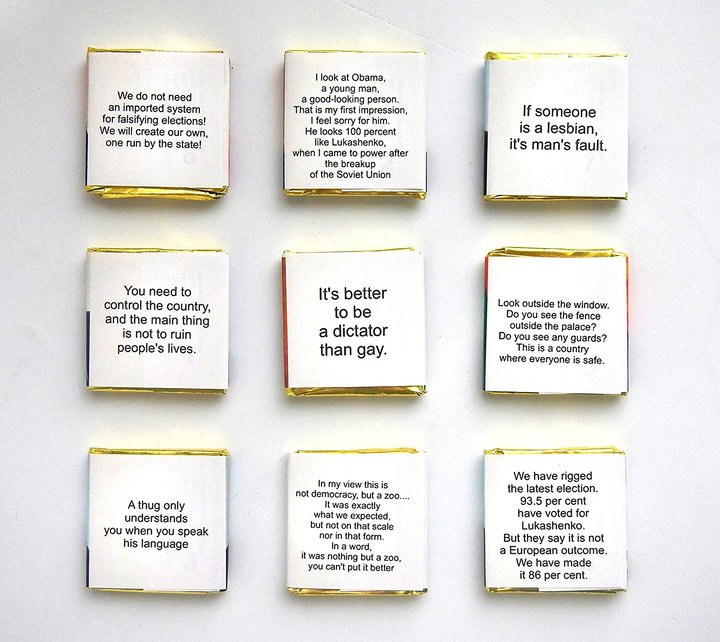 We do not need
an imported system
for falsifying elections!
We will create our own,
one run by the state!
I look at Obama,
a young man,
a good-looking person.
That is my first impression,
I feel sorry for him.
He looks 100 percent
like Lukashenko,
when I came to power after
the breakup
of the Soviet Union
If someone
is a lesbian,
it's man's fault.
You need to
control the country,
and the main thing
is not to ruin
people's lives.
It's better
to be
a dictator
than gay.
Look outside the window.
Do you see the fence
outside the palace?
Do you see any guards?
This is a country
where everyone is safe.
A thug only
understands
you when you speak
his language
In my view this is
not democracy, but a zoo....
It was exactly
what we expected,
but not on that scale
nor in that form.
In a word,
it was nothing but a zoo,
you can't put it better
We have rigged
the latest election.
93.5 per cent
have voted for
Lukashenko.
But they say it is not
a European outcome.
We have made
it 86 per cent.